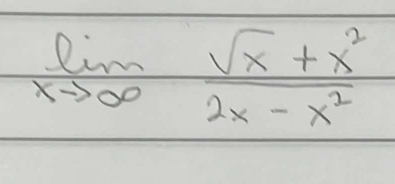 lim √x + x²
x→∞ 2x - x²